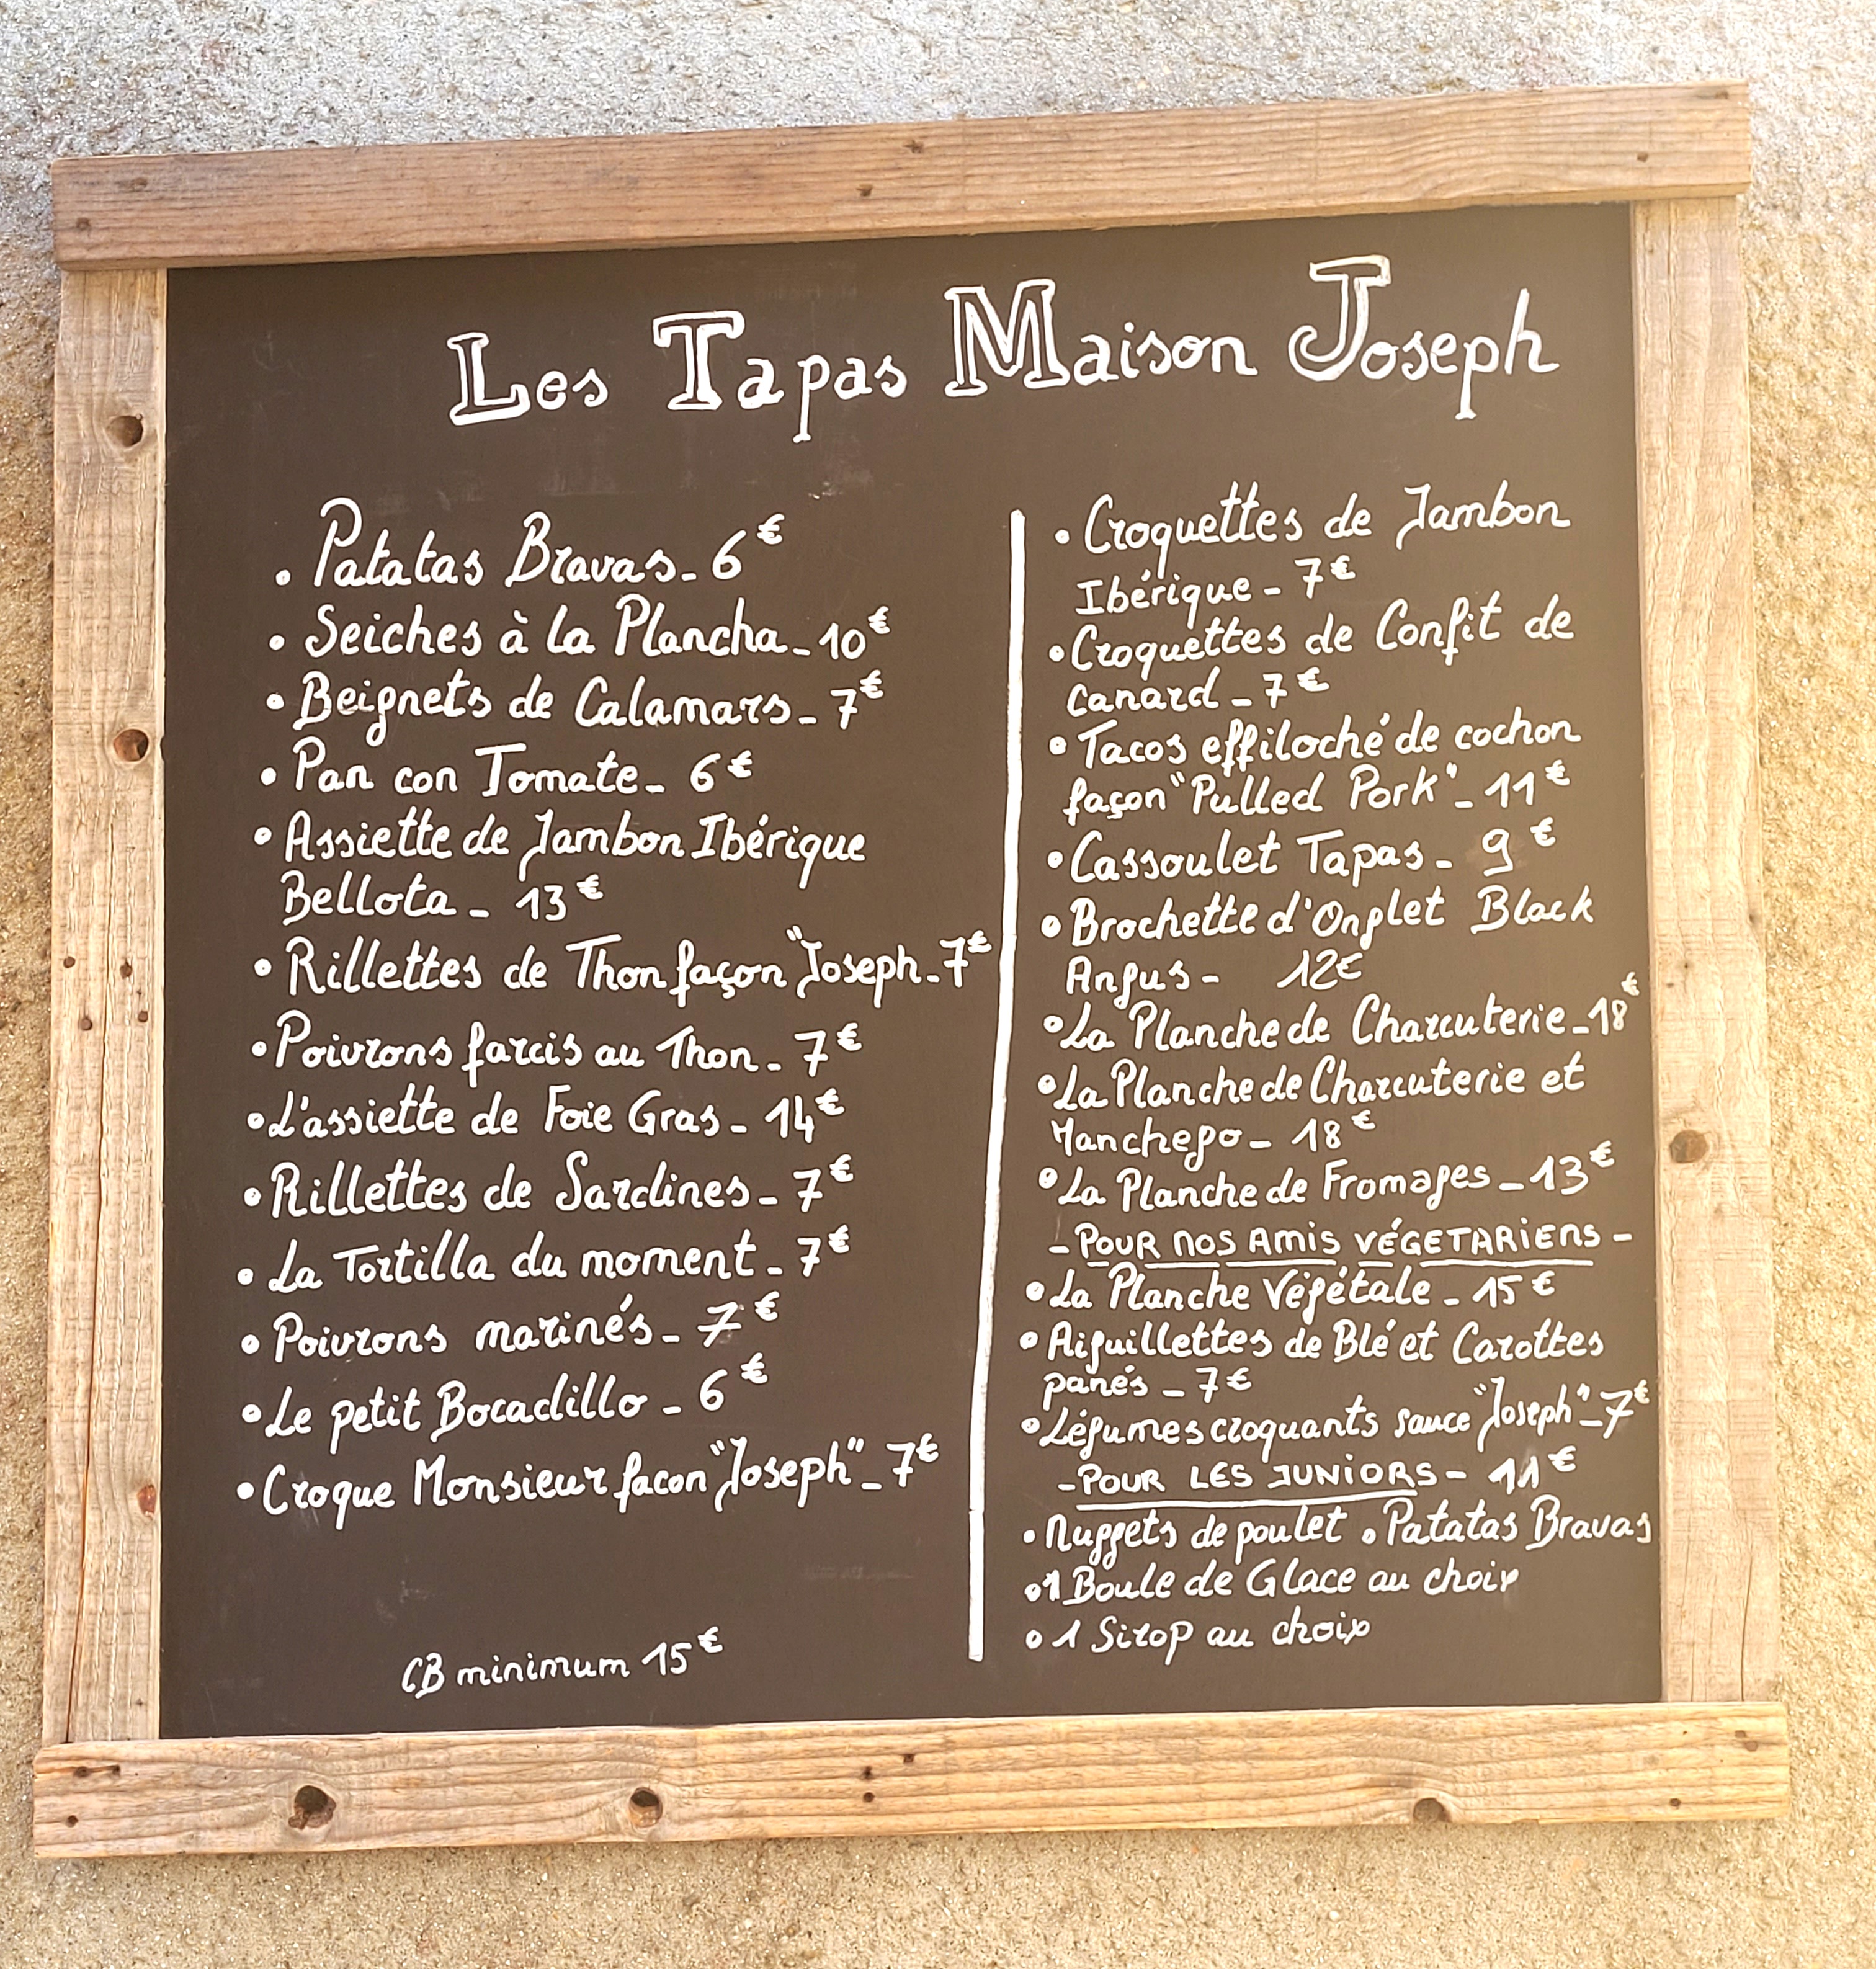 Les Tapas Maison Joseph
• Patatas Bravas - 6€
• Seiches à la Plancha - 10€
• Beignets de Calamars - 7€
• Pan con Tomate - 6€
• Assiette de Jambon Ibérique
Bellota - 13€
• Rillettes de Thon façon "Joseph - 7€
• Poivrons farcis au Thon - 7€
• L'assiette de Foie Gras - 14€
• Rillettes de Sardines - 7€
• La Tortilla du moment - 7€
• Poivrons marinés - 7€
• Le petit Bocadillo - 6€
• Croque Monsieur facon "Joseph" - 7€
CB minimum 15€
• Croquettes de Jambon
Ibérique - 7€
• Croquettes de Confit de
Canard - 7€
• Tacos effiloché de cochon
façon "Pulled Pork" - 11€
• Cassoulet Tapas - 9€
• Brochette d'Onglet Black
Angus - 12€
• La Planche de Charcuterie - 18€
• La Planche de Charcuterie et
Manchego - 18€
• La Planche de Fromages - 13€
- POUR NOS AMIS VÉGETARIENS -
• La Planche Végétale - 15€
• Aiguillettes de Blé et Carottes
panés - 7€
• Légumes croquants sauce "Joseph" - 7€
- POUR LES JUNIORS - 11€
• Nuggets de poulet • Patatas Bravas
• 1 Boule de Glace au choix
• 1 Sirop au choix